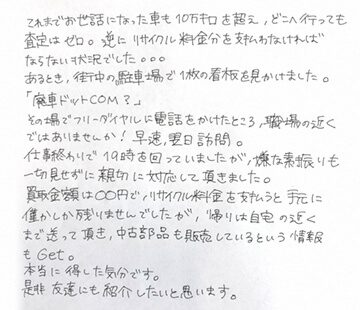 これまでお世話になった車も10万キロを超え、どこへ行っても
査定はゼロ。逆にリサイクル料金分を支払わなければ
ならない状況でした。。。
あるとき、街中の駐車場で1枚の看板を見かけました。
「廃車ドットCOM?」
その場でフリーダイヤルに電話をかけたところ、職場の近く
ではありませんか!早速、翌日訪問。
仕事終わりで19時を回っていましたが、嫌な素振りも
一切見せずに親切に対応して頂きました。
買取金額は〇〇円で、リサイクル料金を支払うと手元に
僅かしか残りませんでしたが、帰りは自宅の近く
まで送って頂き、中古部品も販売しているという情報
もGet。
本当に得した気分です。
是非友達にも紹介したいと思います。